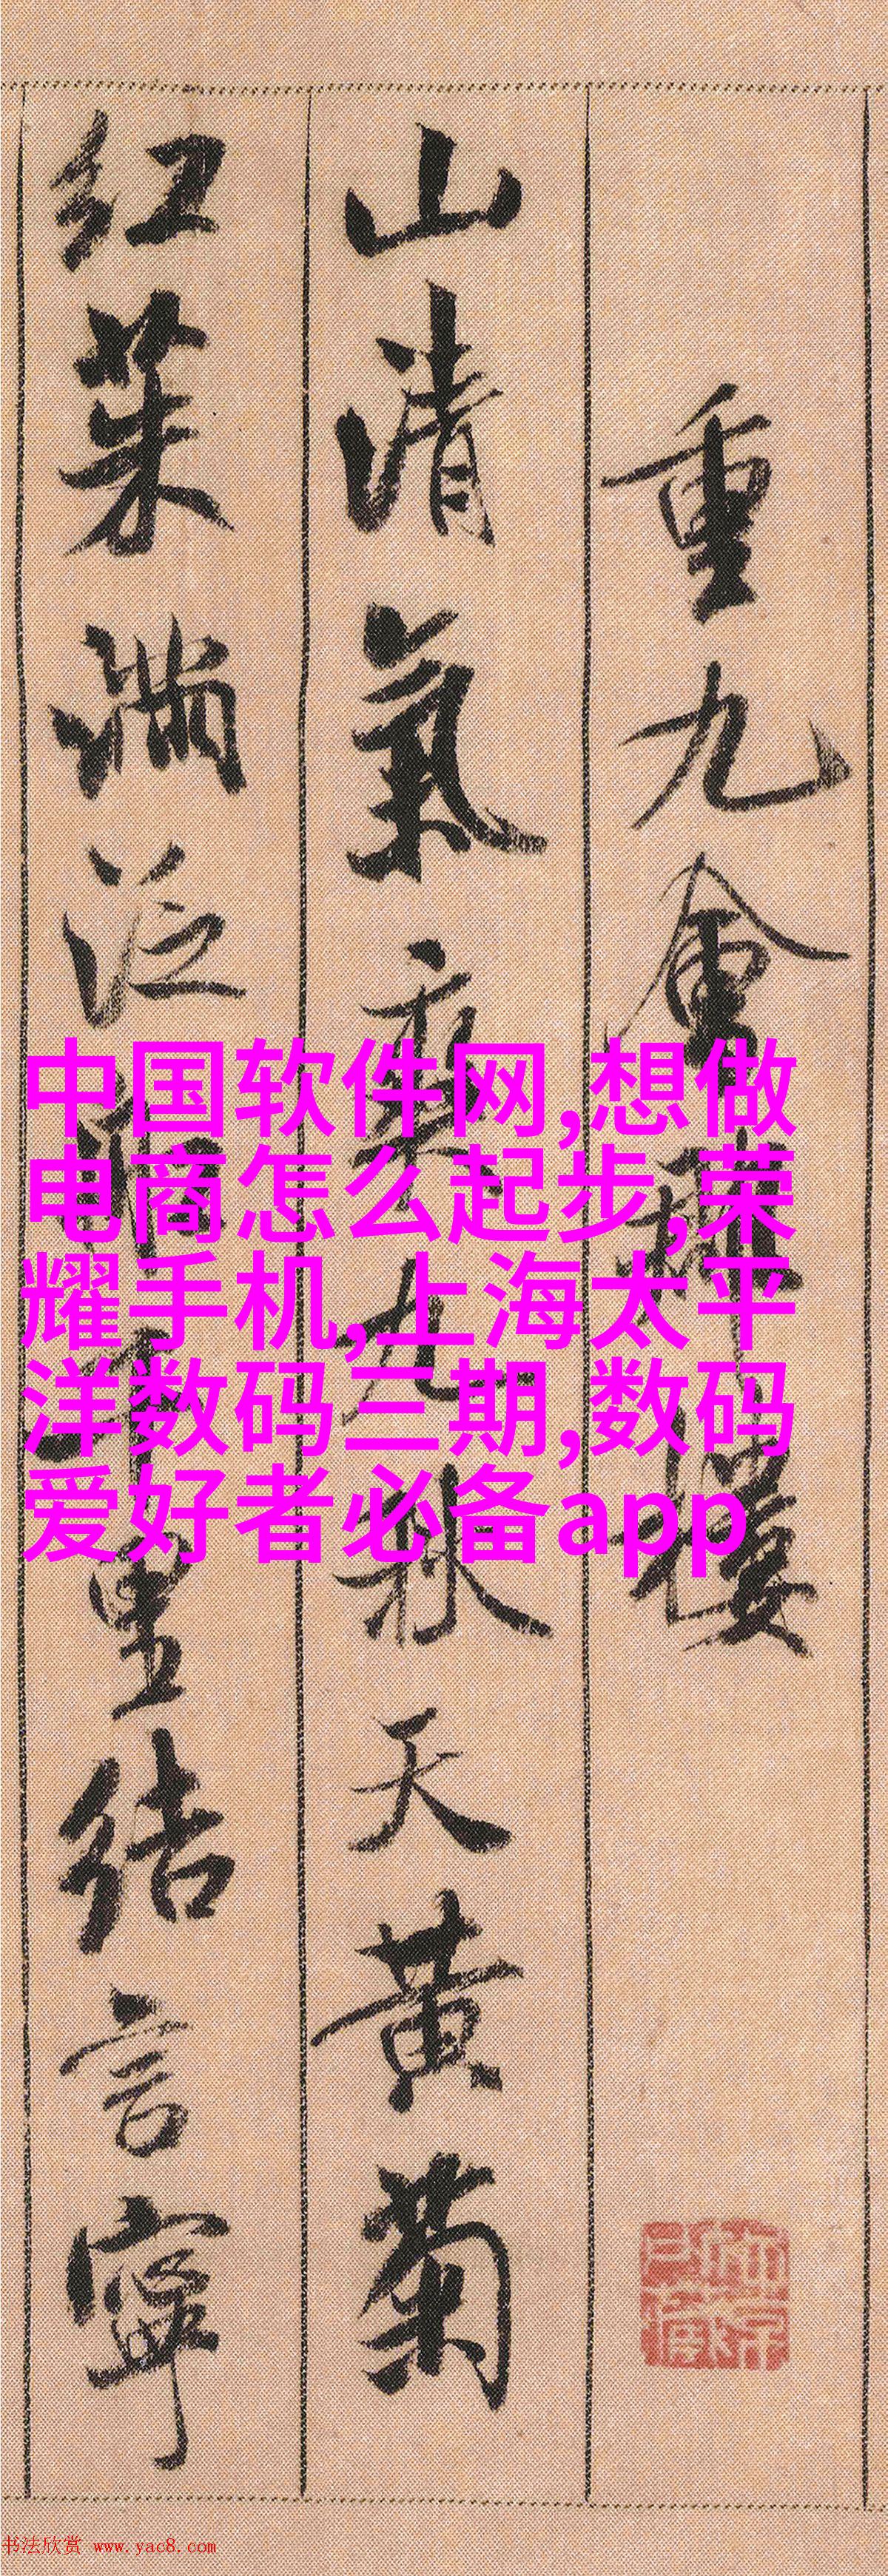 重九會郡樓
山清氣爽九秋天黃菊
紅茱滿泛船千里結言寧
中国软件网,想做
电商怎么起步,荣
耀手机,上海太平
洋数码三期,数码
爱好者必备app
书法欣赏 www.yac8.com